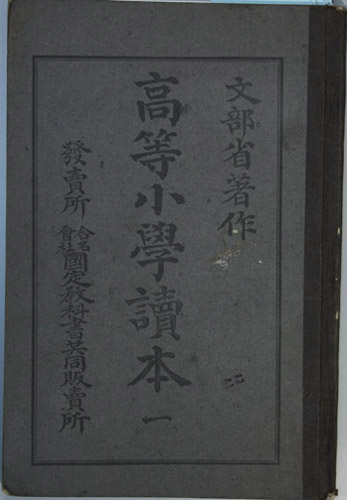 文部省著作
高等小學讀本 一
發賣所 合名會社 國定教科書共同販賣所